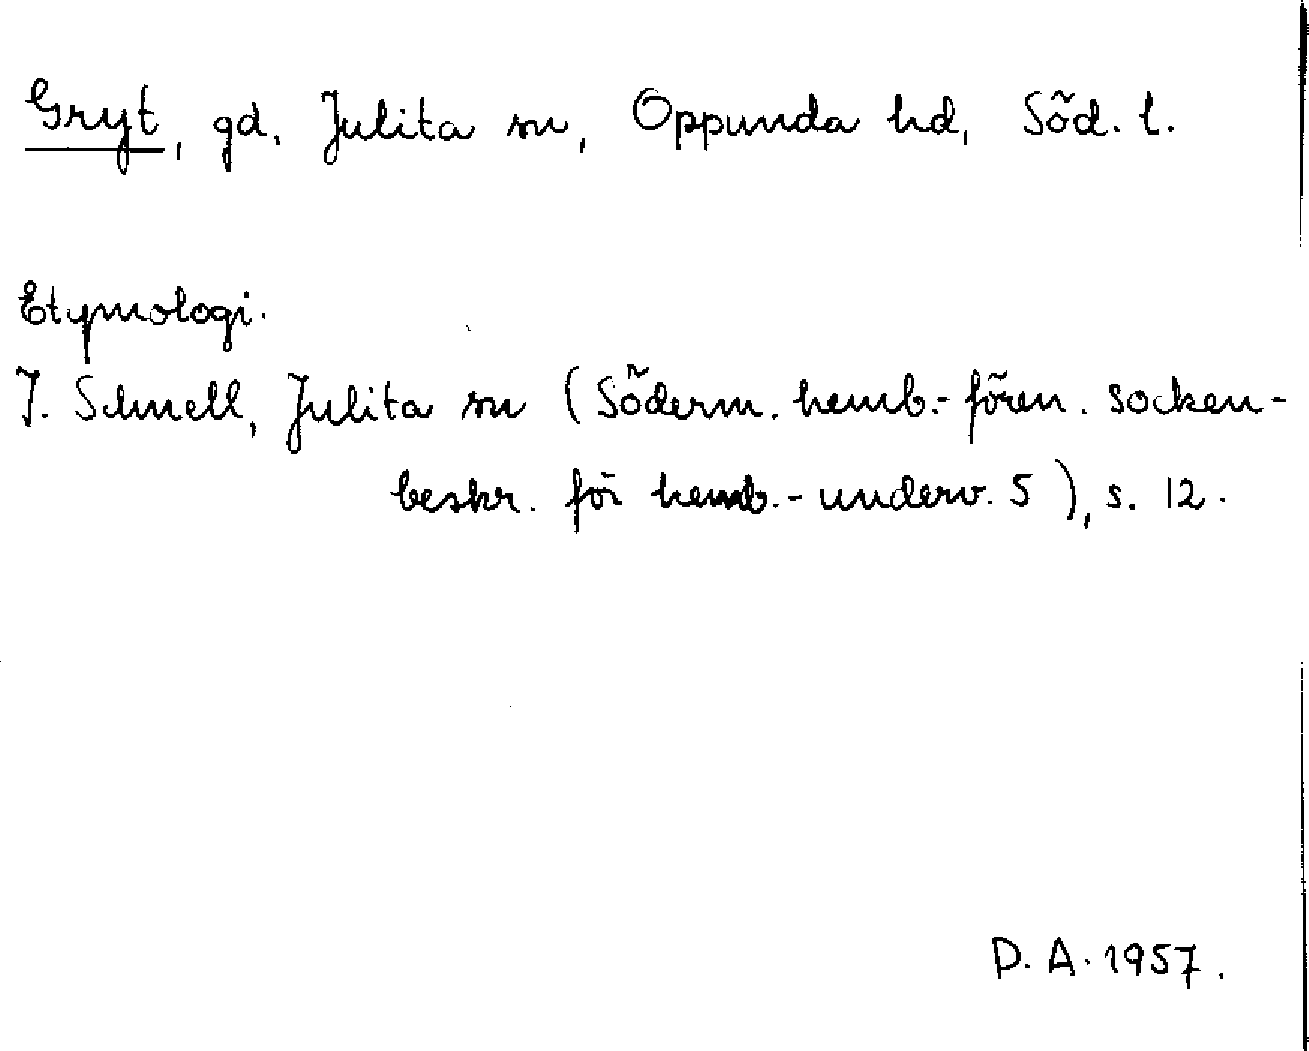 Gryt, gd. Julita sn, Oppunda hd, Söd. l.
Etymologi.
J. Schnell, Julita sn (Söderm. hemb.-fören. socken-
beskr. för hemb.-underv. 5), s. 12.
D. A. 1957.